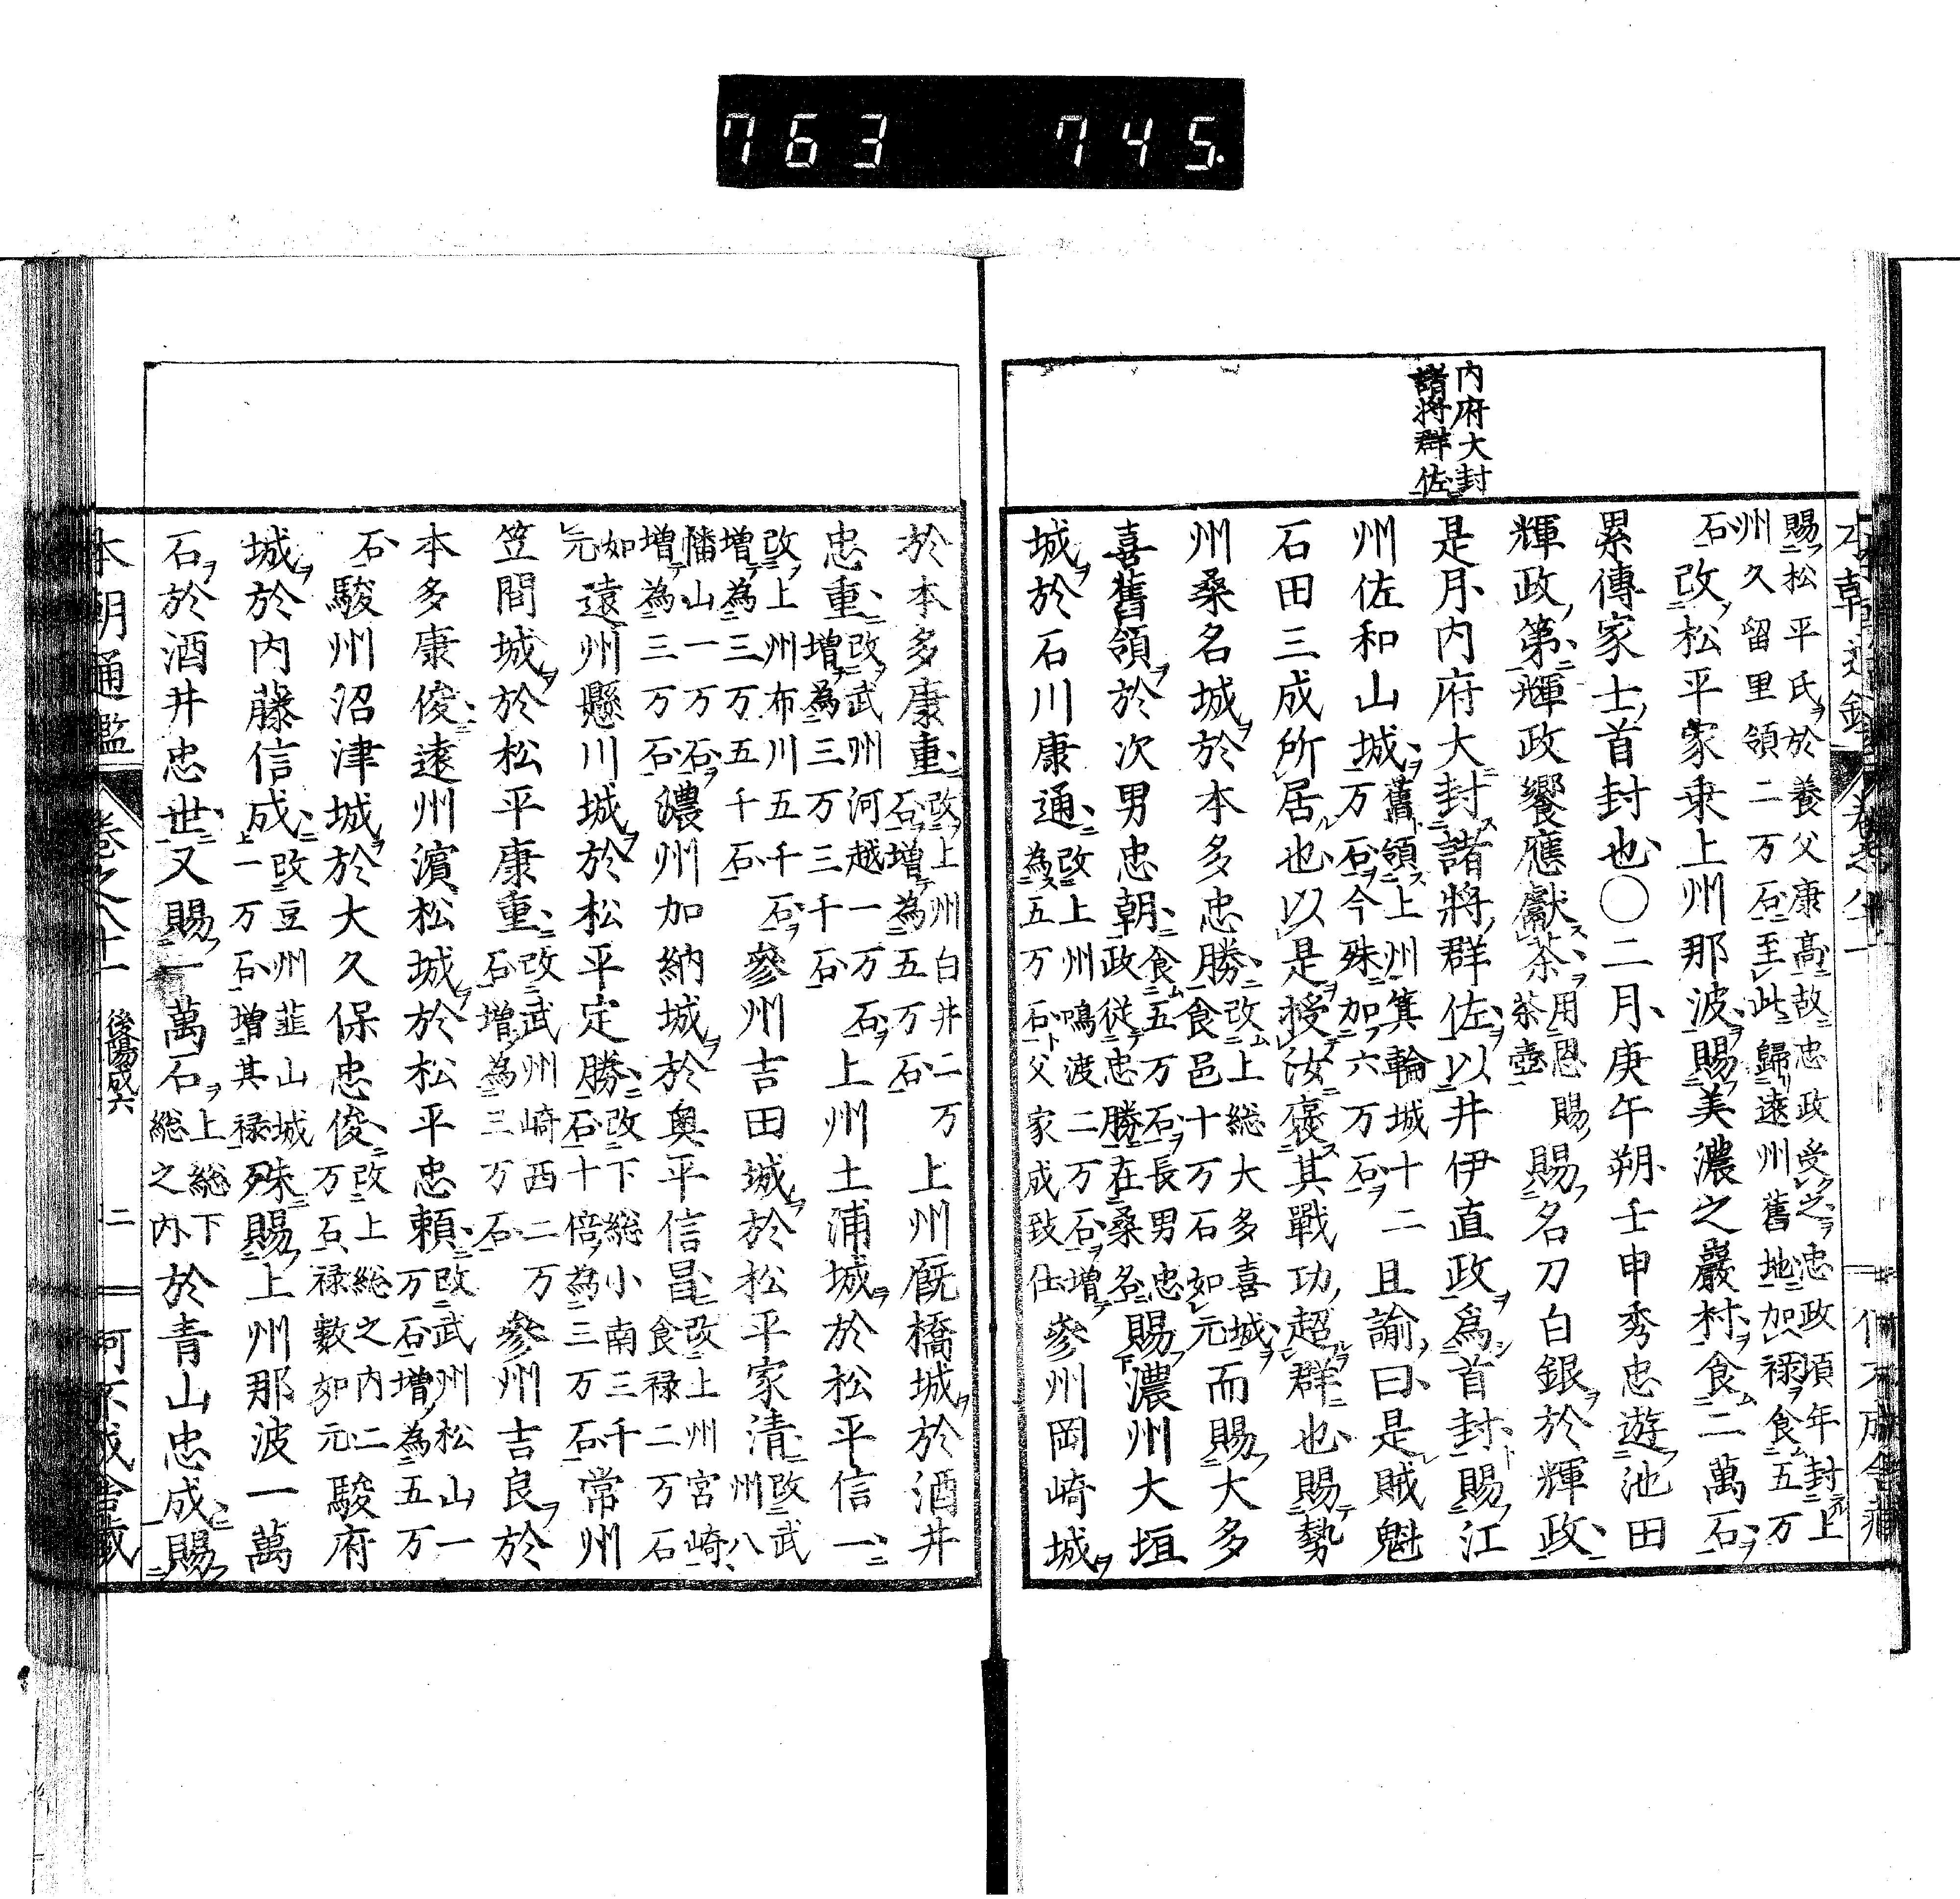 763 745.
内府大封
諸将群佐
賜松平氏於養父康高故忠政受之忠政頃年封上
州久留里領二万石至此歸遠州舊地加禄食五万
石改松平家乗上州那波賜美濃之巖村食二萬石
累傳家士首封也〇二月庚午朔壬申秀忠遊池田
輝政第輝政饗應獻茶用恩賜茶壺賜名刀白銀於輝政
是月内府大封諸將群佐以井伊直政爲首封賜江
州佐和山城舊領上州箕輪城十二万石今殊加六万石且諭曰是賊魁
石田三成所居也以是授汝褒其戰功超群也賜勢
州桑名城於本多忠勝改上総大多喜城食邑十万石如元而賜大多
喜舊領於次男忠朝食五万石長男忠政従忠勝在桑名賜濃州大垣
城於石川康通改上州鳴渡二万石増為五万石父家成致仕參州岡崎城
於本多康重改上州白井二万石増為五万石上州厩橋城於酒井
忠重改武州河越一万石増為三万三千石上州土浦城於松平信一
改上州布川五千石増為三万五千石參州吉田城於松平家清改武州八
幡山一万石増為三万石濃州加納城於奥平信昌改上州宮崎食禄二万石
如元遠州懸川城於松平定勝改下総小南三千石十倍為三万石常州
笠間城於松平康重改武州崎西二万石増為三万石參州吉良於
本多康俊遠州濵松城於松平忠頼改武州松山一万石増為五万
石駿州沼津城於大久保忠俊改上総之内二万石禄數如元駿府
城於内藤信成改豆州韮山城一万石増其禄殊賜上州那波一萬
石於酒井忠世又賜一萬石上総下総之内於青山忠成賜
本朝通鑑 卷之八十一 後陽成六 二